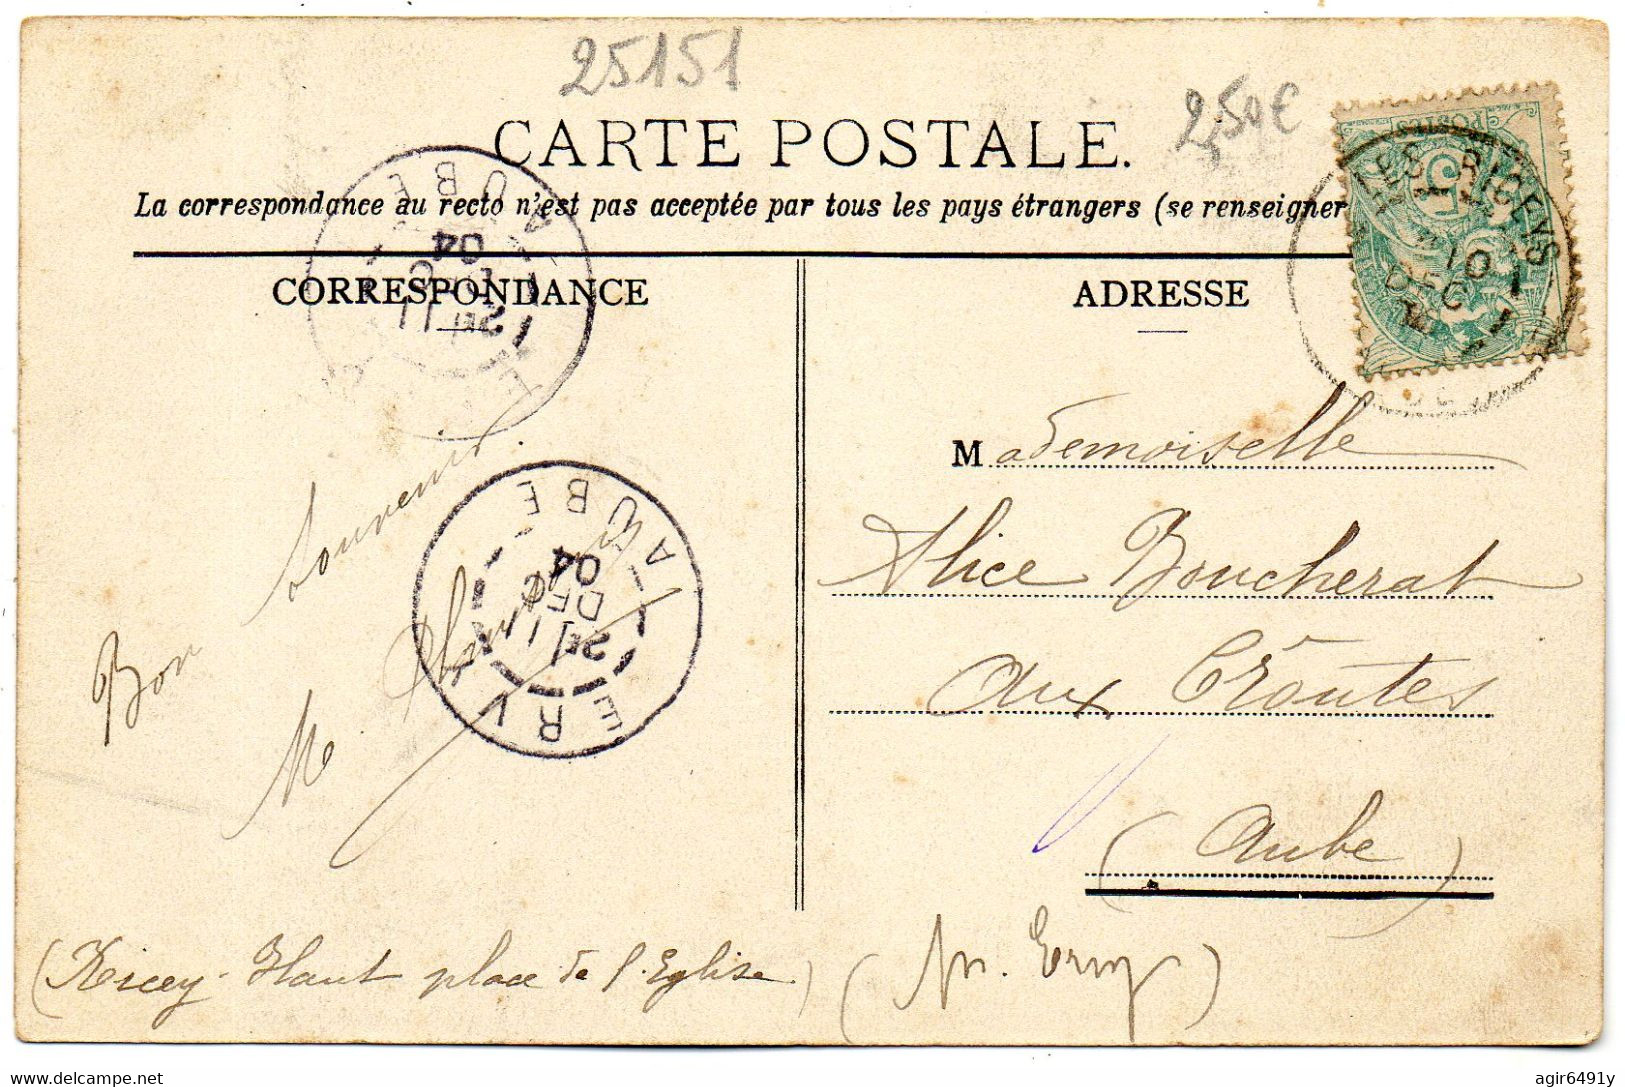 25151
2,50€
CARTE POSTALE.
La correspondance au recto n'est pas acceptée par tous les pays étrangers (se renseigner
CORRESPONDANCE
ADRESSE
POSTES
5
LES RICEYS
10
DEC
AUBE
12E/11
04
Mademoiselle
Alice Boucherat
aux Croûtes
(Aube)
(par Ervy)
Bon souvenir
M
ERVY AUBE
12E/11
DEC
04
(Ricey-Haut place de l'Eglise)
delcampe.net
agir6491y